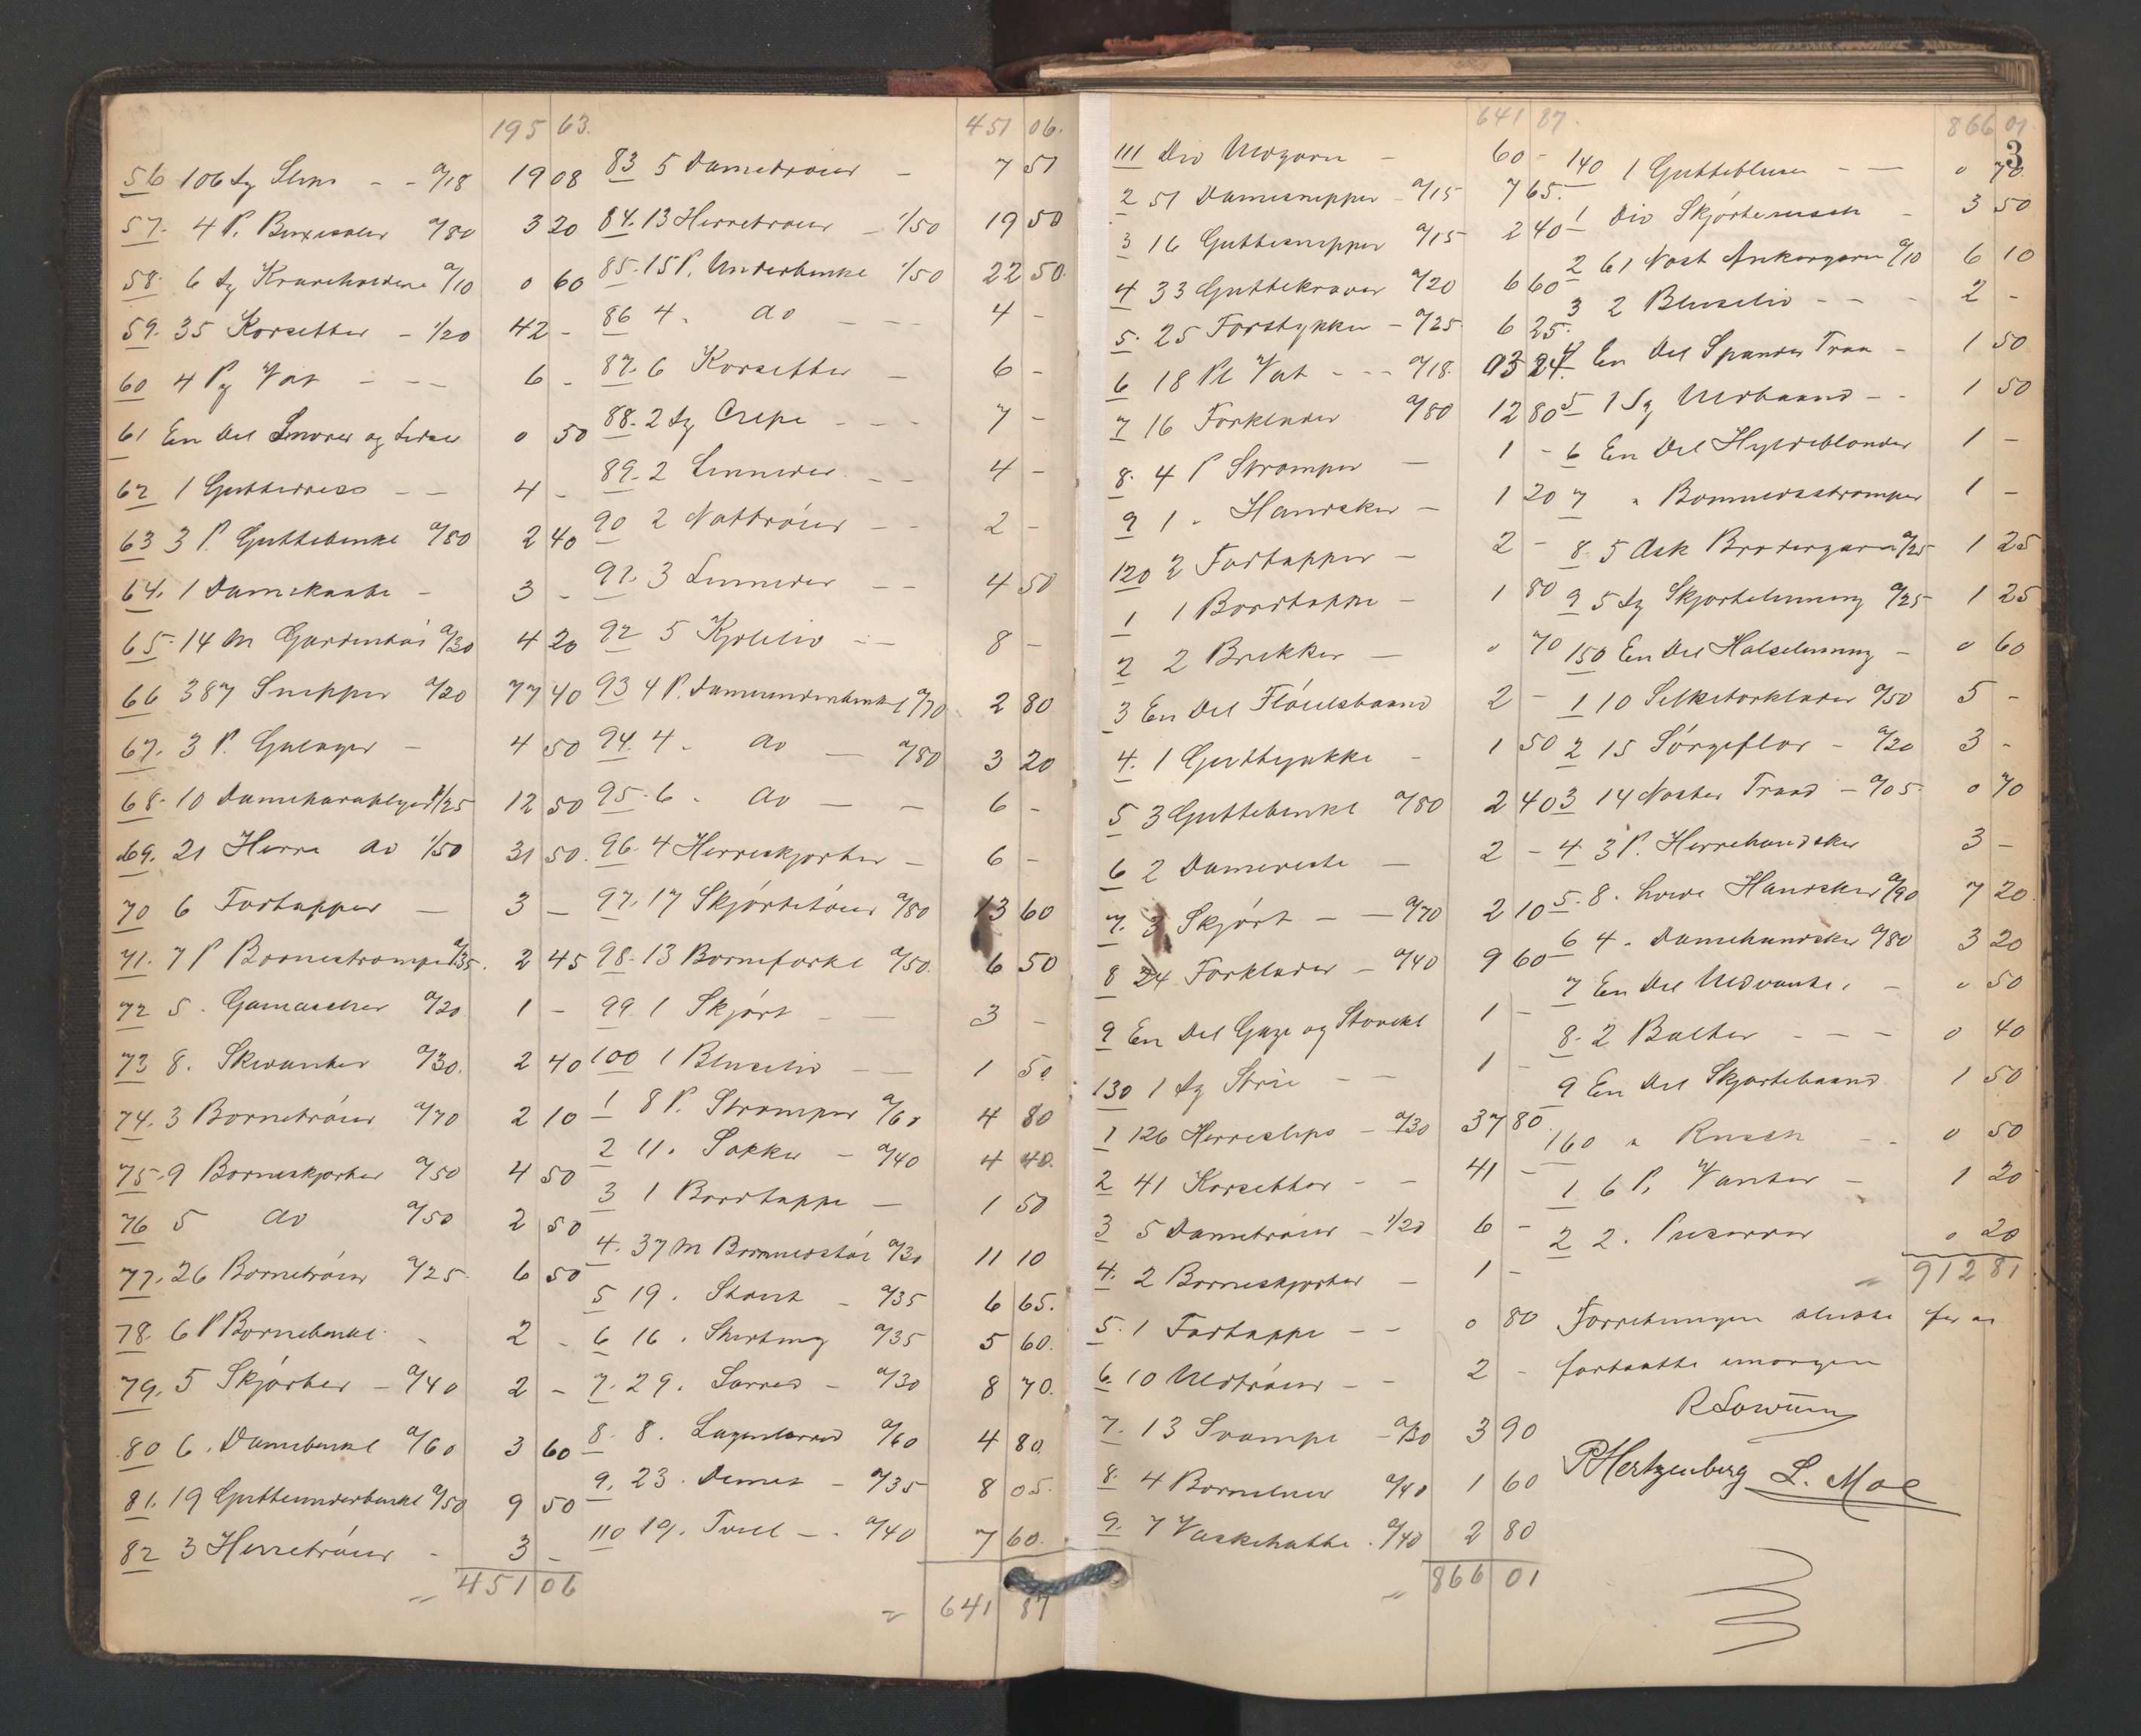 195 63.
56 106 Lg Slips - - a/18 19 08
57. 4 P. Buxeseler a/80 3 20
58. 6 Lg Kraveholdere a/10 0 60
59. 35 Korsetter - 1/20 42 -
60 4 Pg Vat - - - 6 -
61 En Del Snorer og Lidser 0 50
62 1 Guttedress - - 4 -
63 3 P. Guttebenkl a/80 2 40
64. 1 Damekaabe - 3 -
65. 14 M Gardintöi a/30 4 20
66 387 Snipper a/20 77 40
67. 3 P. Galoger - 4 50
68. 10 Dameparaplyer 1/25 12 50
69. 21 Herre do 1/50 31 50.
70 6 Fortapper - 3 -
71. 7 P Bornestromper a/35. 2 45
72 5 . Gamascher a/20 1 -
73 8. Skivanter a/30. 2 40
74. 3 Bornetröier a/70 2 10
75. 9 Borneskjorter a/50 4 50
76 5 do a/50 2 50
77. 26 Bornetröier a/25. 6 50
78. 6 P Bornebenkl. - 2 -
79. 5 Skjörter - a/40 2 -
80 6 . Damebenkl a/60 3 60
81. 19 Gutteunderbenkl a/50 9 50
82 3 Herretröier - 3 -
451 06
451 06.
83 5 Dametröier - 7 51
84. 13 Herretröier - 1/50 19 50
85. 15 P. Underbenkl 1/50 22 50.
86 4 . do - - - 4 -
87. 6 Korsetter - 6 -
88. 2 Lg Crepe - - - 7 -
89. 2 Linneder. - - 4 -
90 2 Nattröier - - 2 -
91. 3 Linneder - - 4 50
92 5 Kjoleliv - - 8 -
93 4 P. Dameunderbenkl a/70 2 80
94. 4 . do - a/80 3 20
95. 6 . do - - 6 -
96. 4 Herreskjorter - 6 -
97. 17 Skjörtetöier a/80 13 60
98. 13 Borneforkl a/50. 6 50
99. 1 Skjört - - 3 -
100 1 Bluseliv - - 1 50
1 8 P. Stromper a/60 4 80
2 11. Sokker - a/40 4 40.
3 1 Bordtappe - 1 50
4. 37 M Bommerstöi a/30 11 10
5 19 . Stout - a/35 6 65.
6 16 . Shirting a/35 5 60.
7. 29. Larred - a/30 8 70.
8. 8. Lagenlarred a/60 4 80.
9. 23 . Demet - a/35 8 05.
110 19. Tvill - . a/40 7 60.
641 87
641 87.
111 Div Uldgarn - 60 -
2 51 Damesnipper - a/15 7 65.
3 16 Guttesnipper a/15 2 40
4 33 Guttekraver a/20 6 60
5. 25 Forstykker - a/25. 6 25.
6 18 Pl Vat - - - a/18. 3 24.
7 16 Forklader a/80 12 80
8. 4 P Stromper - 1 -
9 1 . Handsker - 1 20
120 2 Fortapper - 2 -
1 1 Bordtappe - 1 80
2 2 Brikker - 0 70
3 En Del Flöielsbaand 2 -
4. 1 Guttejakke - 1 50
5 3 Guttebenkl a/80 2 40
6 2 Dameveste - 2 -
7. 3 Skjört - - a/70 2 10
8 24 Forklader - a/40 9 60
9 En Del Gaze og Stovekl 1 -
130 1 Lg Strie - - 1 -
1 126 Herreslips - a/30 37 80
2 41 Korsetter - - 41 -
3 5 Dametröier - 1/20 6 -
4. 2 Borneskjorter - 1 -
5. 1 Fortappe - - 0 80
6. 10 Uldtröier - - 2 -
7. 13 Svampe - a/30 3 90
8. 4 Bornehuer a/40 1 60
9. 7 Vaskehatte . a/40 2 80
866 01
866 01.
3
140 1 Guttebluse - - 0 70.
1 Div Skjörterusch - 3 50
2 61 Nost Ankergarn a/10 6 10
3 2 Bluseliv - - - 2 -
4 En Del Spander Traa - 1 50
5 1 Lg Uldbaand - - 1 50
6 En Del Hyldeblonder 1 -
7 " Bommuldsstromper 1 -
8. 5 Ask Brodergarn a/25 1 25
9 5 Lg Skjortelinning a/25 1 25
150 En Del Halselinning - 0 60
1 10 Silketorklader a/50 5 -
2 15 Sörgeflor - a/20 3 -
3 14 Noster Traad - a/05. 0 70
4 3 P. Herrehandsker 3 -
5. 8 . hvide Handsker a/90 7 20.
6 4 . Damehandsker a/80 3 20
7 En Del Uldvanter. - 0 50
8. 2 Balter - - - 0 40
9 En Del Skjortebaand 1 50
160 " Rusch - - 0 50
1 6 P. Vanter - 1 20
2 2 . Pusvarmer 0 20
912 81
Forretningen sluttet for at
fortsatte imorgen
R Lowum
P. Hertzenberg L. Moe